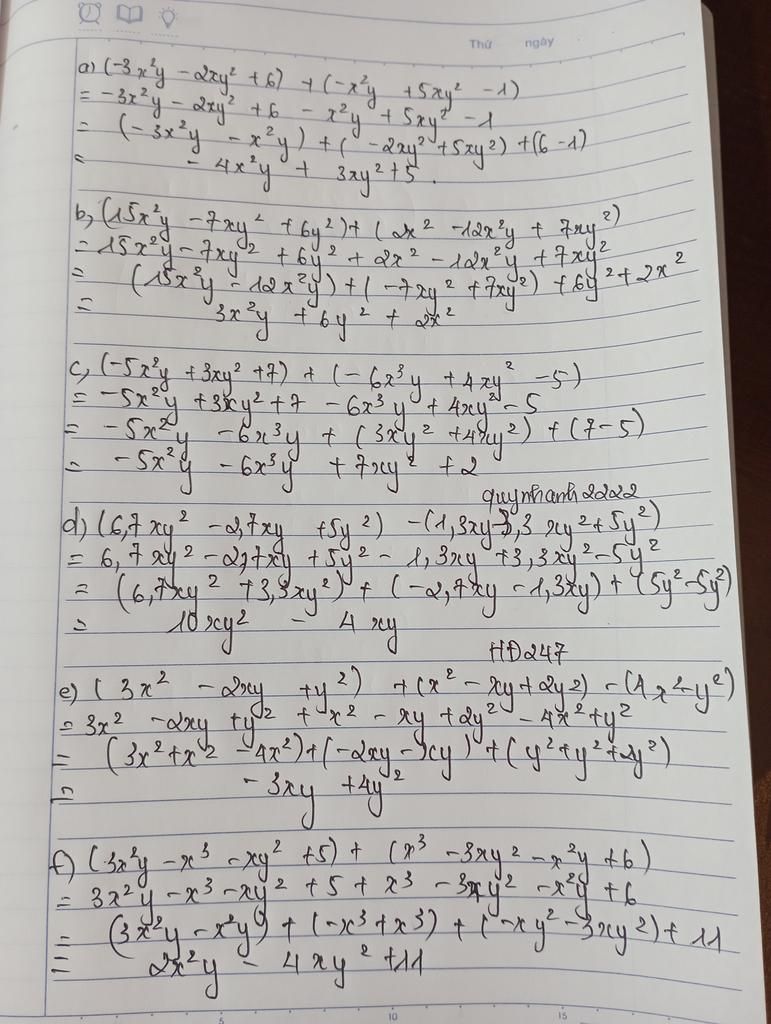 Thứ ngày
a) (-3x²y - 2xy² + 6) + (-x²y + 5xy² - 1)
= -3x²y - 2xy² + 6 - x²y + 5xy² - 1
= (-3x²y - x²y) + (-2xy² + 5xy²) + (6 - 1)
= - 4x²y + 3xy² + 5.
b, (15x²y - 7xy² + 6y²) + (2x² - 12x²y + 7xy²)
= 15x²y - 7xy² + 6y² + 2x² - 12x²y + 7xy²
= (15x²y - 12x²y) + (-7xy² + 7xy²) + 6y² + 2x²
= 3x²y + 6y² + 2x²
c, (-5x²y + 3xy² + 7) + (-6x³y + 4xy² - 5)
= -5x²y + 3xy² + 7 - 6x³y + 4xy² - 5
= -5x²y - 6x³y + (3xy² + 4xy²) + (7 - 5)
= -5x²y - 6x³y + 7xy² + 2
quynhanh2222
d) (6,7xy² - 2,7xy + 5y²) - (1,3xy - 3,3xy² + 5y²)
= 6,7xy² - 2,7xy + 5y² - 1,3xy + 3,3xy² - 5y²
= (6,7xy² + 3,3xy²) + (-2,7xy - 1,3xy) + (5y² - 5y²)
= 10xy² - 4xy
HĐ247
e) (3x² - 2xy + y²) + (x² - xy + 2y²) - (4x² - y²)
= 3x² - 2xy + y² + x² - xy + 2y² - 4x² + y²
= (3x² + x² - 4x²) + (-2xy - xy) + (y² + y² + 2y²)
= -3xy + 4y²
f) (3x²y - x³ - xy² + 5) + (x³ - 3xy² - x²y + 6)
= 3x²y - x³ - xy² + 5 + x³ - 3xy² - x²y + 6
= (3x²y - x²y) + (-x³ + x³) + (-xy² - 3xy²) + 11
= 2x²y - 4xy² + 11
5 10 15